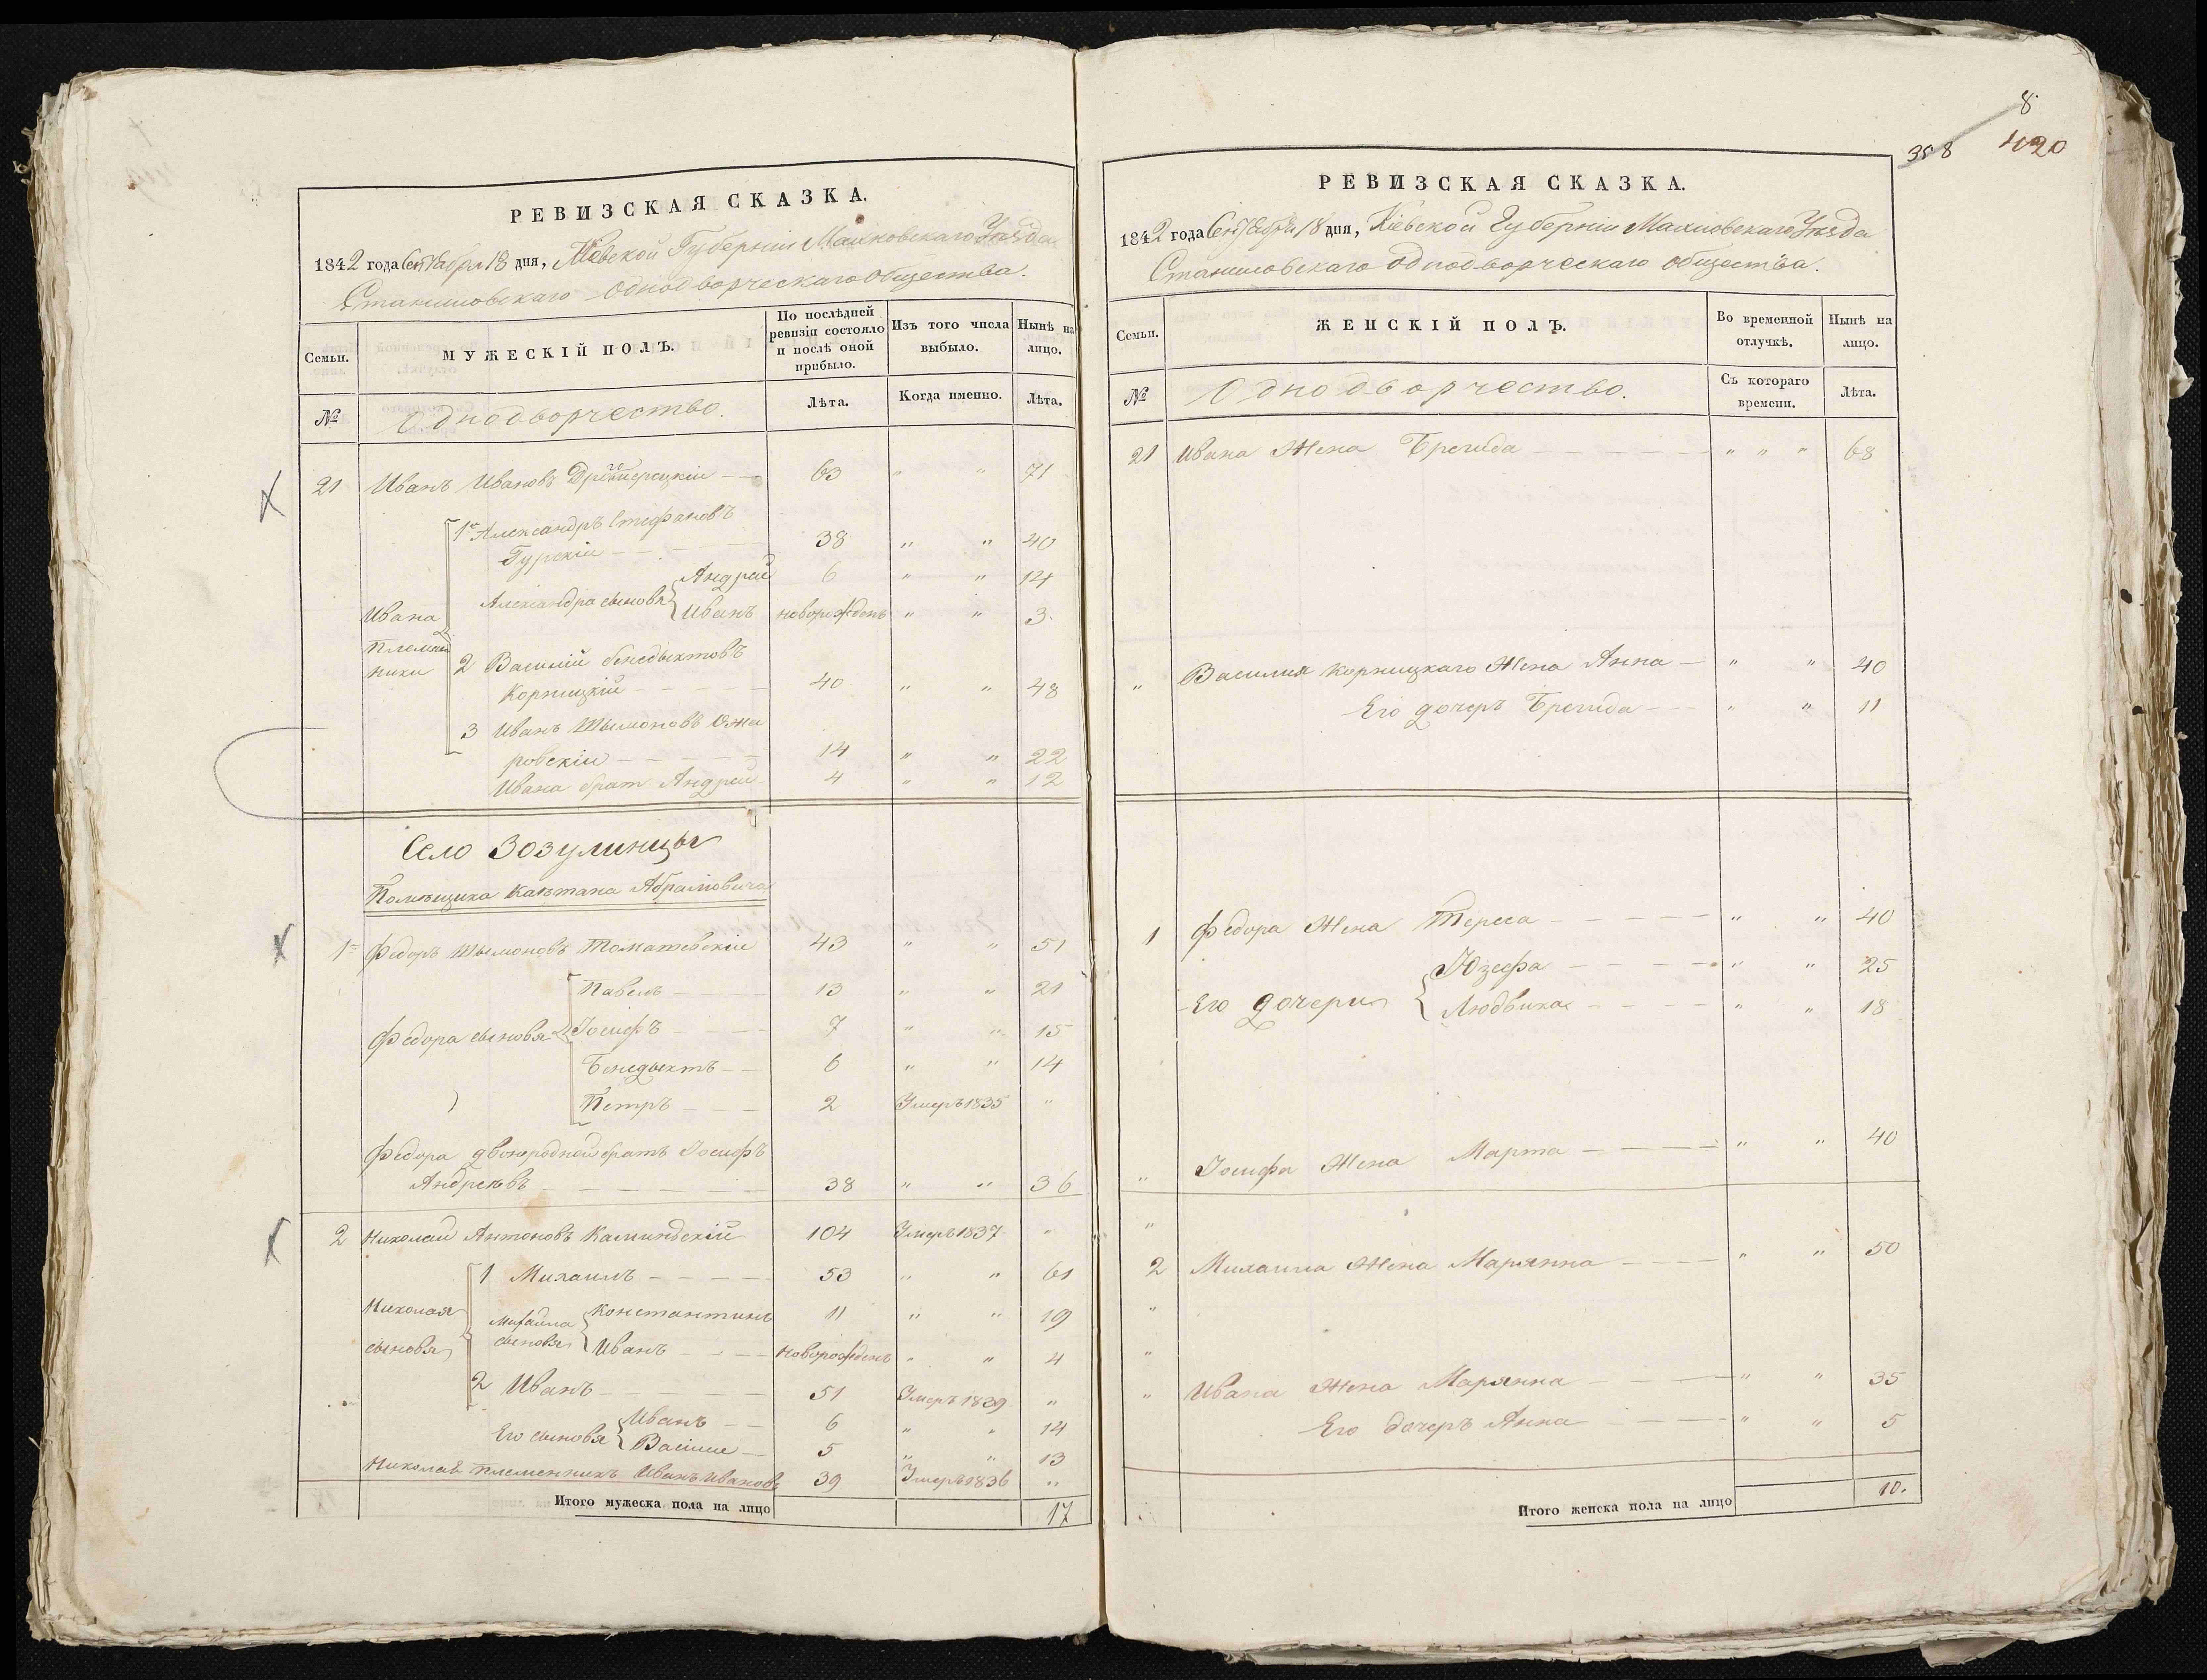 8
358 420
РЕВИЗСКАЯ СКАЗКА.
1842 года Сентября 18 дня, Кіевской Губерніи Махновскаго Уѣзда
Станиловскаго однодворческаго общества.
Семьи.
МУЖЕСКІЙ ПОЛЪ.
По послѣдней ревизіи состояло и послѣ оной прибыло.
Изъ того числа выбыло.
Нынѣ на лицо.
№
Однодворчество.
Лѣта.
Когда именно.
Лѣта.
21 Иванъ Ивановъ 63 " " 71
1й Александръ Стефановъ
Гурскій 38 " " 40
Александра сыновья Андрей 6 " " 14
Иванъ новорожденъ " " 3
Ивана
племян
ники
2 Василій бенедыктовъ
Корницкій 40 " " 48
3 Иванъ Шымоновъ Ожа
ровскій 14 " " 22
Ивана братъ Андрей 4 " " 12
Село Зозулинцы
Помѣщика Каѣтана Абрамовича
1 Федоръ Шымоновъ Томашевскій 43 " " 51
Федора сыновья
Павелъ 13 " " 21
Іосифъ 7 " " 15
Бенедыктъ 6 " " 14
Петръ 2 Умеръ 1835 "
Федора двоюродной братъ Іосифъ
Андреевъ 38 " " 36
2 Николай Антоновъ Каминскій 104 Умеръ 1837 "
Николая
сыновья
1 Михаилъ 53 " " 61
Михаила сыновья Константинъ 11 " " 19
Иванъ новорожденъ " " 4
2 Иванъ 51 Умеръ 1839 "
Его сыновья Иванъ 6 " " 14
Василій 5 " " 13
Николая племенникъ Иванъ Ивановъ 39 Умеръ 1836 "
Итого мужеска пола на лицо 17
РЕВИЗСКАЯ СКАЗКА.
1842 года Сентября 18 дня, Кіевской Губерніи Махновскаго Уѣзда
Станиловскаго однодворческаго общества.
Семьи.
ЖЕНСКІЙ ПОЛЪ.
Во временной отлучкѣ.
Нынѣ на лицо.
№
Однодворчество.
Съ котораго времени.
Лѣта.
21 Ивана Жена Бригида " " " 68
" Василія Корницкаго Жена Анна " " 40
Его дочеръ Бригида " " 11
1 Федора Жена Тереса " " 40
Его дочери
Юзефа " " 25
Людвика " " 18
" Іосифа Жена Марта " " 40
"
2 Михаила Жена Марянна " " 50
"
"
" Ивана Жена Марянна " " 35
Его дочеръ Анна " " 5
Итого женска пола на лицо 10.